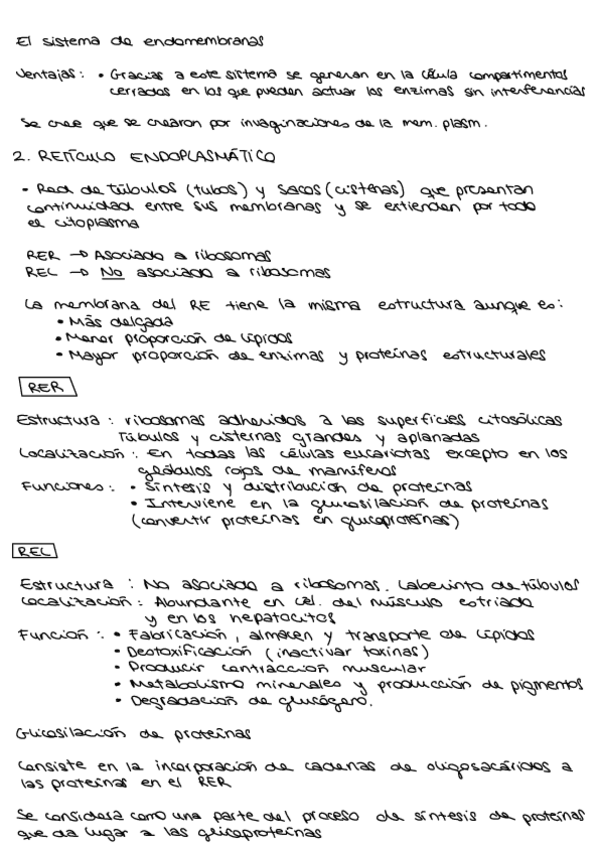 El sistema de endomembranas
Ventajas: • Gracias a este sistema se generan en la célula compartimentos
cerrados en los que pueden actuar las enzimas sin interferencias
Se cree que se crearon por invaginaciones de la mem. plasm.
2. RETÍCULO ENDOPLASMÁTICO
• Red de túbulos (tubos) y sacos (cisternas) que presentan
continuidad entre sus membranas y se extienden por todo
el citoplasma
RER → Asociado a ribosomas
REL → No asociado a ribosomas
La membrana del RE tiene la misma estructura aunque es:
• Más delgada
• Menor proporción de lípidos
• Mayor proporción de enzimas y proteínas estructurales
RER
Estructura: ribosomas adheridos a las superficies citosólicas
Túbulos y cisternas grandes y aplanadas
Localización: En todas las células eucariotas excepto en los
glóbulos rojos de mamíferos
Funciones: • Síntesis y distribución de proteínas
• Interviene en la glucosilación de proteínas
(convertir proteínas en glucoproteínas)
REL
Estructura: No asociado a ribosomas. Laberinto de túbulos
Localización: Abundante en cél. del músculo estriado
y en los hepatocitos
Función: • Fabricación, almacen y transporte de lípidos
• Deotoxificación (inactivar toxinas)
• Producir contracción muscular
• Metabolismo minerales y producción de pigmentos
• Degradación de glucógeno.
Glicosilación de proteínas
Consiste en la incorporación de cadenas de oligosacáridos a
las proteínas en el RER
Se considera como una parte del proceso de síntesis de proteínas
que da lugar a las glicoproteínas